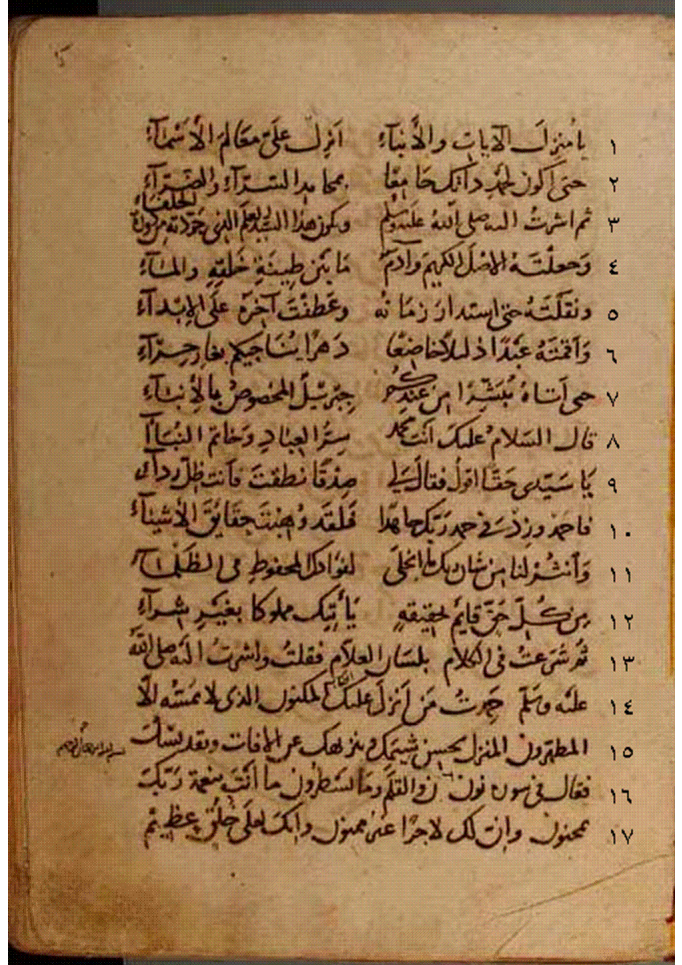 يا منزل الآيات والأنباء انزل علي معالم الأسماء ١
حتى أكون لحمد ذاتك جامعا بمحامد السراء والضراء ٢
ثم اشرت اليه صلى الله عليه وسلم ويكون هذا السيد العلم الذي جردته من دورة الخلفاء ٣
وجعلته الاصل الكريم وآدم ما بين طينة خلقه والماء ٤
ونقلته حتى استدار زمانه وعطفت آخره على الإبداء ٥
وأقمته عبدا ذليلا خاضعا دهرا يناجيكم بغار حراء ٦
حتى أتاه مبشرا من عندكم جبريل المخصوص بالأنباء ٧
قال السلام عليك انت محمد سر العباد وخاتم النبآء ٨
يا سيدي حقا اقول فقال لي صدقا نطقت فأنت ظل ردآئي ٩
فاحمد وزد في حمد ربك جاهدا فلقد وهبت حقائق الأشياء ١٠
وانثر لنا من شان ربك ما انجلى لفؤادك المحفوظ في الظلماء ١١
من كل حق قايم بحقيقة يأتيك مملوكا بغير شراء ١٢
ثم شرعت في الكلام بلسان العلام فقلت واشرت اليه صلى الله ١٣
عليه وسلم حمدت من أنزل عليك الكتاب المكنون الذي لا يمسه الا ١٤
المطهرون المنزل بحسن شيمك وتنزيهك عن الافات وتقديسك ١٥
فقال في سورة نون ن والقلم وما يسطرون ما أنت بنعمة ربك ١٦
بمجنون وان لك لاجرا غير ممنون وانك لعلى خلق عظيم ١٧